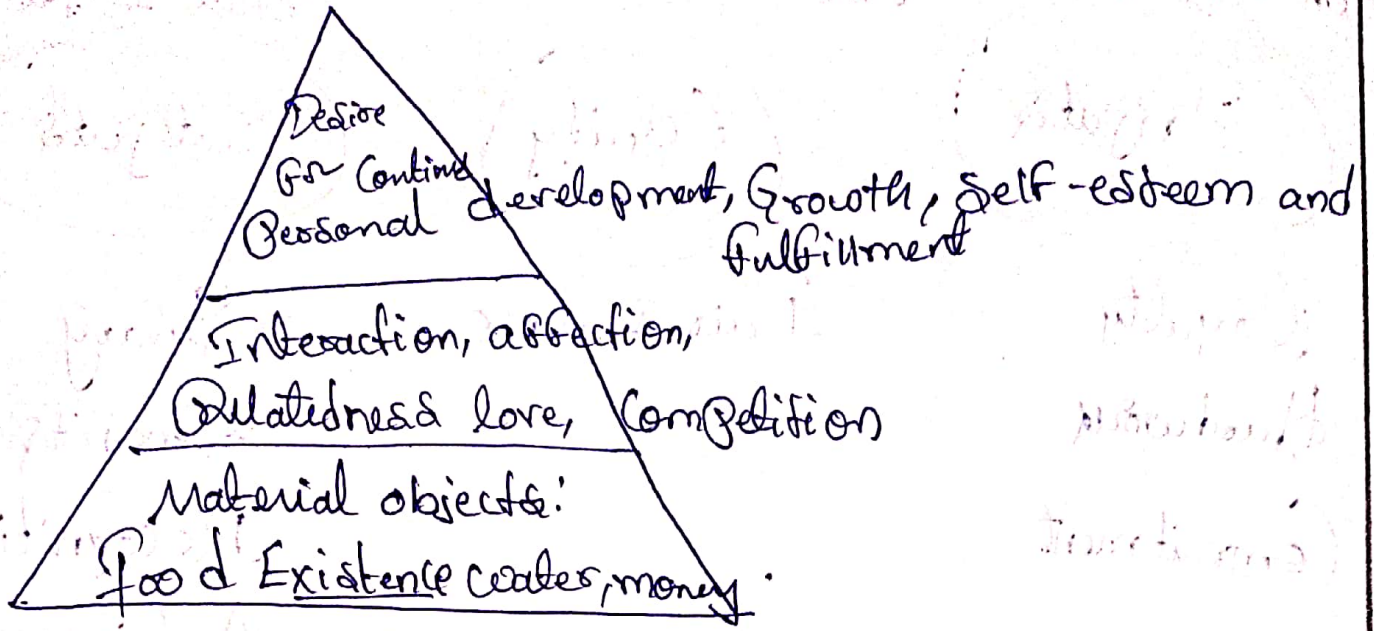 Desire
For Continue
Personal development, Growth, Self-esteem and
fulfillment
Interaction, affection,
Relatedness love, Competition
Material objects:
Food Existence water, money.